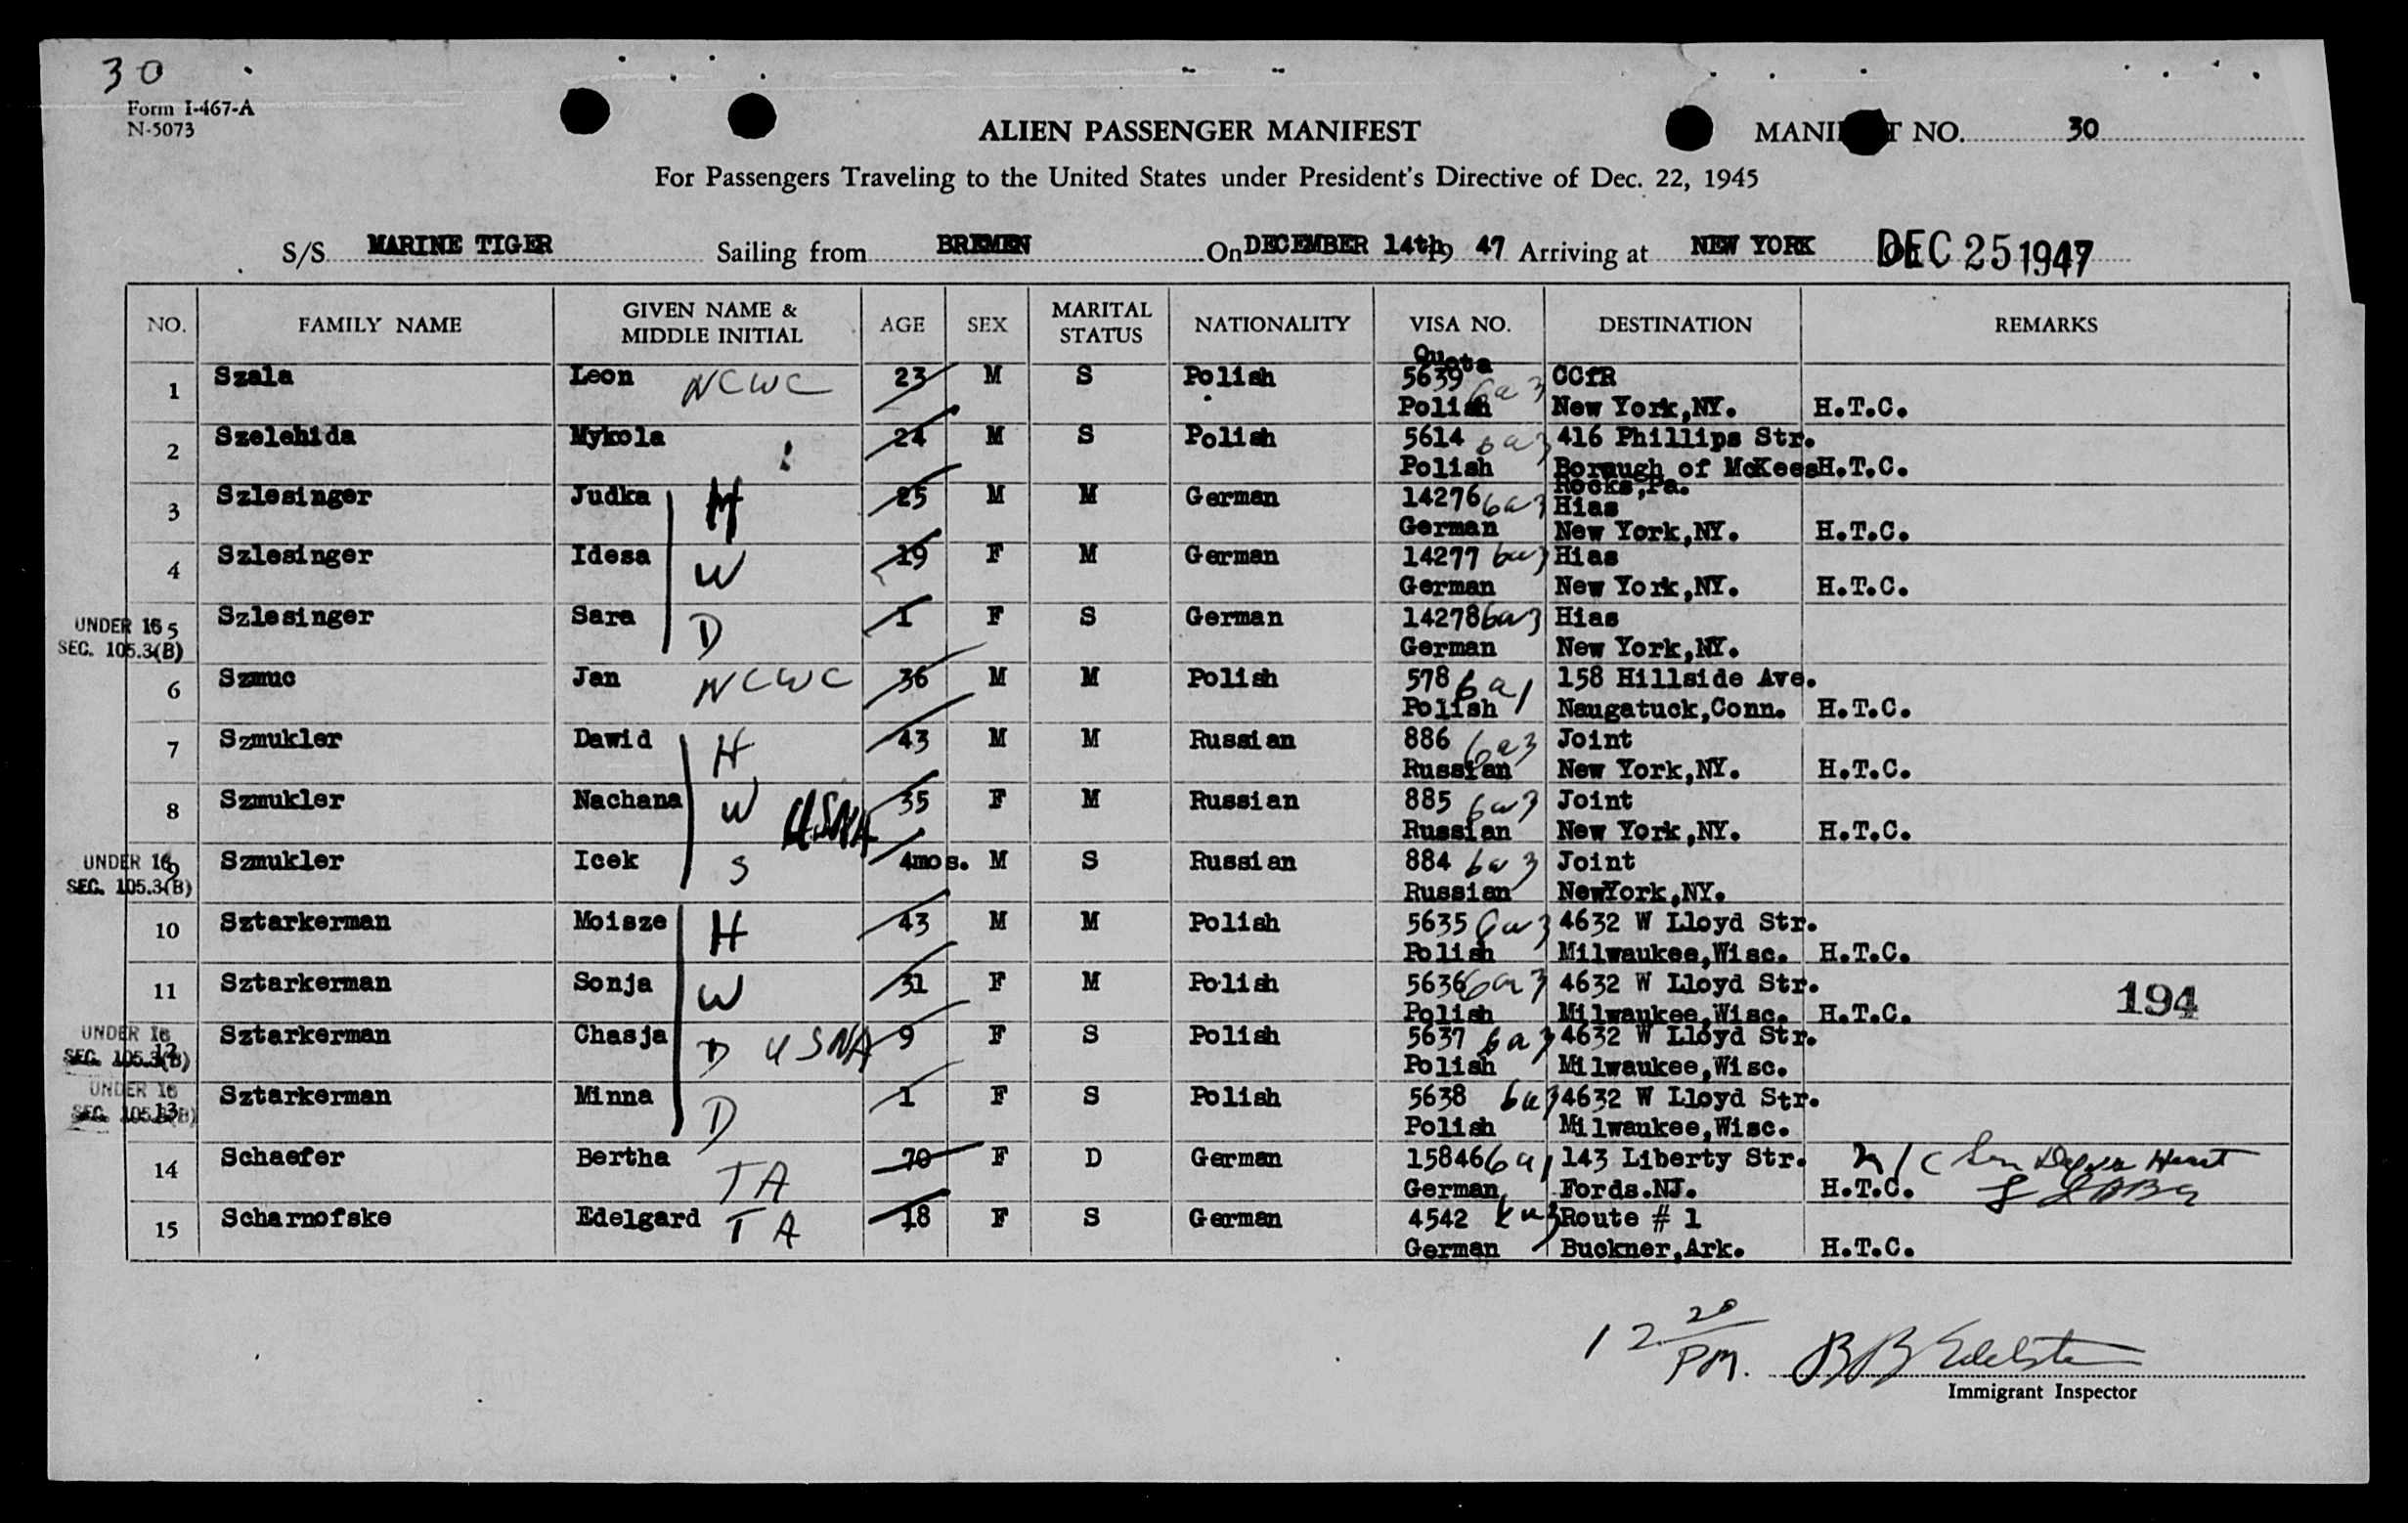 30
Form I-467-A
N-5073
ALIEN PASSENGER MANIFEST
MANI T NO. 30
For Passengers Traveling to the United States under President's Directive of Dec. 22, 1945
S/S MARINE TIGER Sailing from BREMEN On DECEMBER 14th 19 47 Arriving at NEW YORK DEC 25 1947
NO. FAMILY NAME GIVEN NAME & MIDDLE INITIAL AGE SEX MARITAL STATUS NATIONALITY VISA NO. DESTINATION REMARKS
Quota
1 Szala Leon NCWC 23 M S Polish 5639 6a3 CCfR
Polish New York,NY. H.T.C.
2 Szelehida Mykola 24 M S Polish 5614 6a3 416 Phillips Str.
Polish Borough of McKees H.T.C.
Rocks,Pa.
3 Szlesinger Judka H 25 M M German 14276 6a3 Hias
German New York,NY. H.T.C.
4 Szlesinger Idesa W 19 F M German 14277 6a3 Hias
German New York,NY. H.T.C.
UNDER 16 5 Szlesinger Sara D 1 F S German 14278 6a3 Hias
SEC. 105.3(B) German New York,NY.
6 Szmuc Jan NCWC 36 M M Polish 578 6a1 158 Hillside Ave.
Polish Naugatuck,Conn. H.T.C.
7 Szmukler Dawid H 43 M M Russian 886 6a3 Joint
Russian New York,NY. H.T.C.
8 Szmukler Nachana W USNA 35 F M Russian 885 6a3 Joint
Russian New York,NY. H.T.C.
UNDER 16 9 Szmukler Icek S 4mos. M S Russian 884 6a3 Joint
SEC. 105.3(B) Russian NewYork,NY.
10 Sztarkerman Moisze H 43 M M Polish 5635 6a3 4632 W Lloyd Str.
Polish Milwaukee,Wisc. H.T.C.
11 Sztarkerman Sonja W 31 F M Polish 5636 6a3 4632 W Lloyd Str.
Polish Milwaukee,Wisc. H.T.C. 194
UNDER 16 12 Sztarkerman Chasja D USNA 9 F S Polish 5637 6a3 4632 W Lloyd Str.
SEC. 105.3(B) Polish Milwaukee,Wisc.
UNDER 16 13 Sztarkerman Minna D 1 F S Polish 5638 6a3 4632 W Lloyd Str.
SEC. 105.3(B) Polish Milwaukee,Wisc.
14 Schaefer Bertha TA 70 F D German 15846 6a1 143 Liberty Str.
German Fords.NJ. H.T.C.
15 Scharnofske Edelgard TA 18 F S German 4542 6a3 Route # 1
German Buckner,Ark. H.T.C.
12 20 PM. BB Edelste
Immigrant Inspector